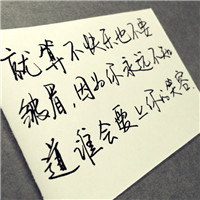 就算不快乐也不要
皱眉，因为你永远不知
道谁会爱上你的笑容